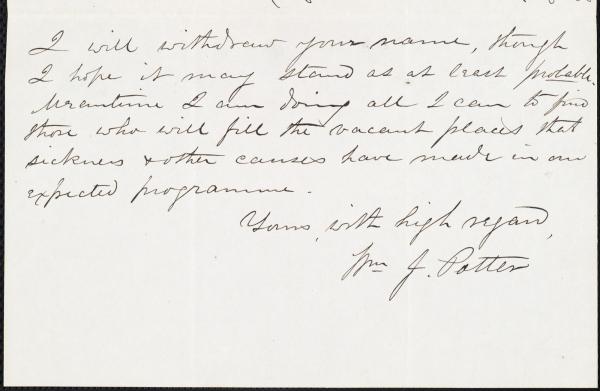 I will withdraw your name, though
I hope it may stand as at least probable.
Meantime I am doing all I can to find
those who will fill the vacant places that
sickness & other causes have made in our
expected programme.
Yours, with high regard,
Wm J. Potter